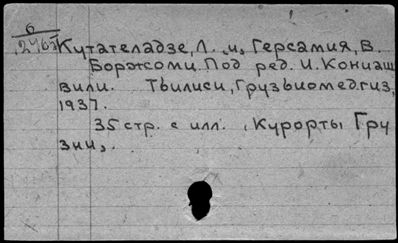 6
Кутателадзе, Л. и, Герсамия, В.
Боржоми. Под ред. И. Кониаш
вили. Тбилиси, Грузбиомедгиз,
1937.
35 стр. с илл. (Курорты Гру
зии).